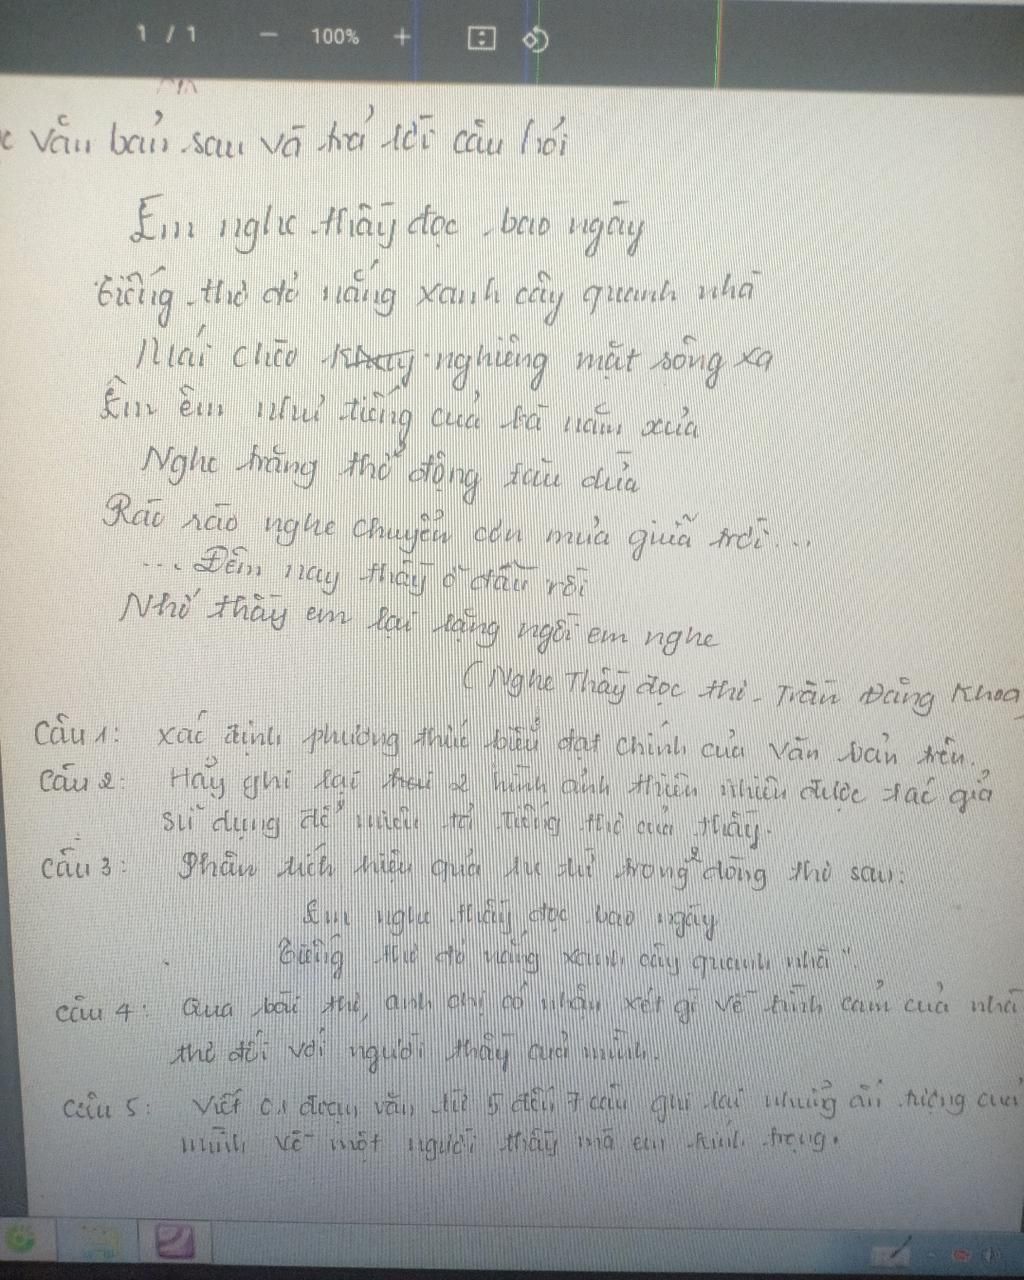 1 / 1 — 100% +
văn bản sau và trả lời câu hỏi
Em nghe thầy đọc bao ngày
Tiếng thơ đỏ nắng xanh cây quanh nhà
Mái chèo nghiêng mặt sông xa
Êm êm như tiếng của bà năm xưa
Nghe trăng thở động tàu dừa
Rào rào nghe chuyển cơn mưa giữa trời...
... Đêm nay thầy ở đâu rồi
Nhớ thầy em lại lặng ngồi em nghe
( Nghe Thầy đọc thơ - Trần Đăng Khoa
Câu 1: Xác định phương thức biểu đạt chính của văn bản trên.
Câu 2: Hãy ghi lại 2 hình ảnh thiên nhiên được tác giả
sử dụng để miêu tả tiếng thơ của thầy.
Câu 3: Phân tích hiệu quả tu từ trong 2 dòng thơ sau:
Em nghe thầy đọc bao ngày
Tiếng thơ đỏ nắng xanh cây quanh nhà".
Câu 4: Qua bài thơ, anh chị có nhận xét gì về tình cảm của nhà
thơ đối với người thầy của mình.
Câu 5: Viết 01 đoạn văn từ 5 đến 7 câu ghi lại những ấn tượng của
mình về một người thầy mà em kính trọng.